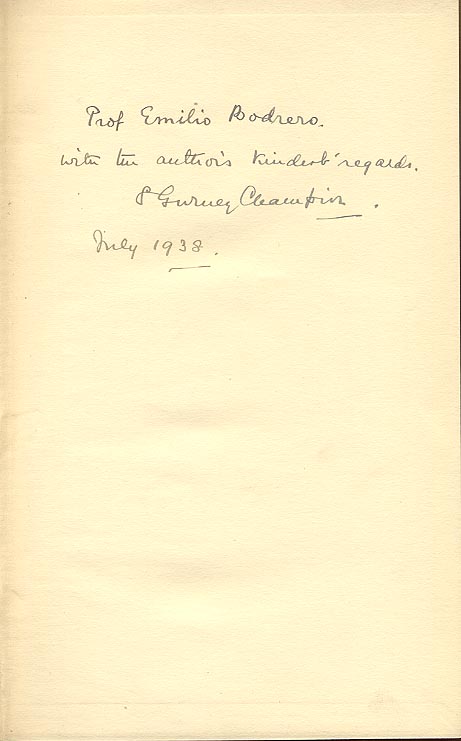 Prof Emilio Bodrero.
with the author's kindest regards.
S Gurney Champion.
July 1938.